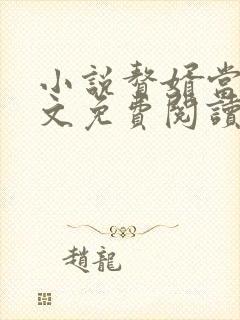 小說贅婿當
文免費閱讀
趙龍